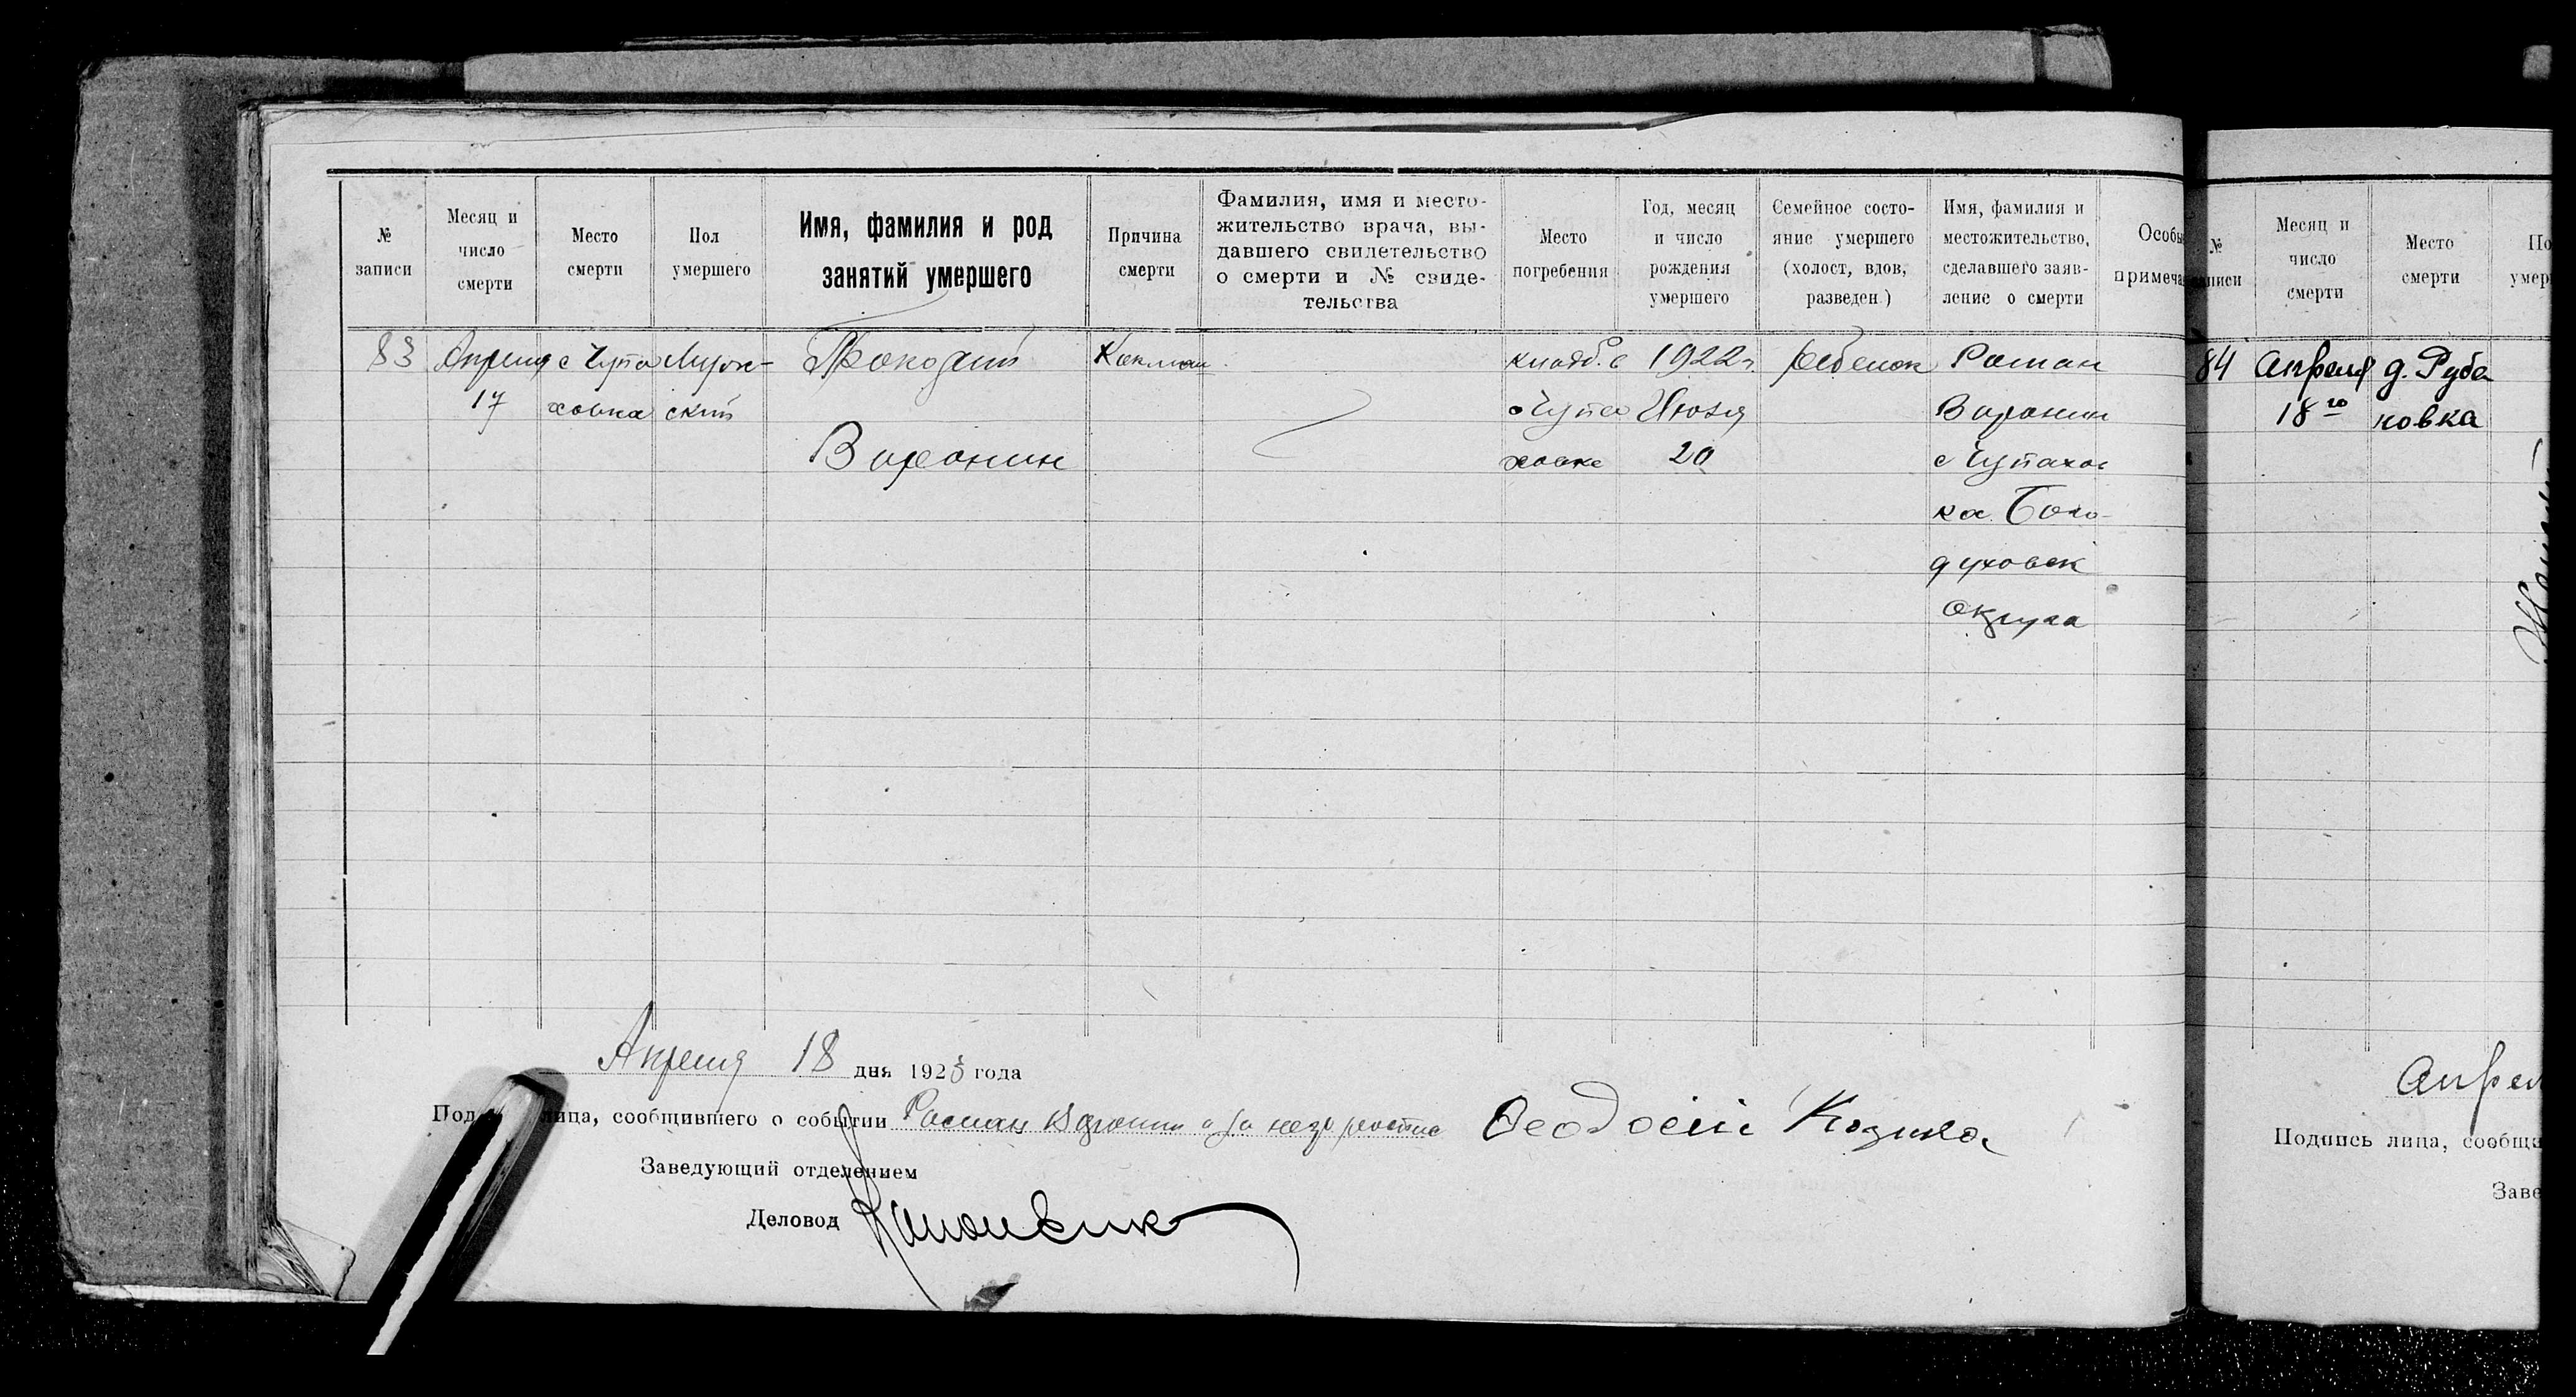 № записи
Месяц и число смерти
Место смерти
Пол умершего
Имя, фамилия и род занятий умершего
Причина смерти
Фамилия, имя и место-
жительство врача, вы-
давшего свилетельство
о смерти и № свиде-
тельства
Место погребения
Год, месяц и число рождения умершего
Семейное состо-
яние умершего
(холост, вдов,
разведен.)
Имя, фамилия и
местожительство,
сделавшего заяв-
ление о смерти
Особы
примеча
83
Апреля
17
с Чупа
ховка
Мужс-
ский
Прокофий
Воронин
кладб. с
Чупа
ховке
1922 г.
Июля
20
ребенок
Роман
Воронин
с Чупахов
ка Бого-
духовск
округа
Апреля 18 дня 1923 года
Под лица, сообщившего о событии Роман Воронин а за негр
Феодосий
Заведующий отделением
Деловод
№
записи
Месяц и
число
смерти
Место
смерти
По
умер
84
Апреля
18го
д. Руба
новка
Апрел
Подпись лица, сообщи
Заве